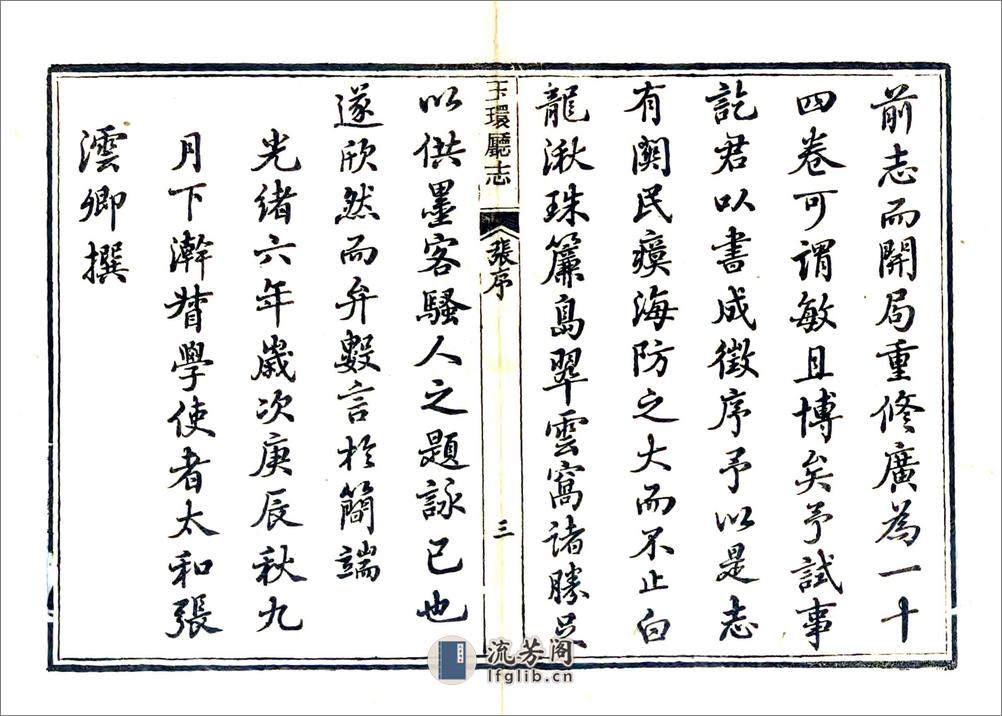 前志而開局重修廣為一十
四卷可謂敏且博矣予試事
訖君以書成徵序予以是志
有關民瘼海防之大而不止白
龍湫珠簾島翠雲窩諸勝足
玉環廳志
張序
三
以供墨客騷人之題詠已也
遂欣然而弁數言於簡端
光緒六年歲次庚辰秋九
月下澣督學使者太和張
澐卿撰
流芳阁
lfglib.cn